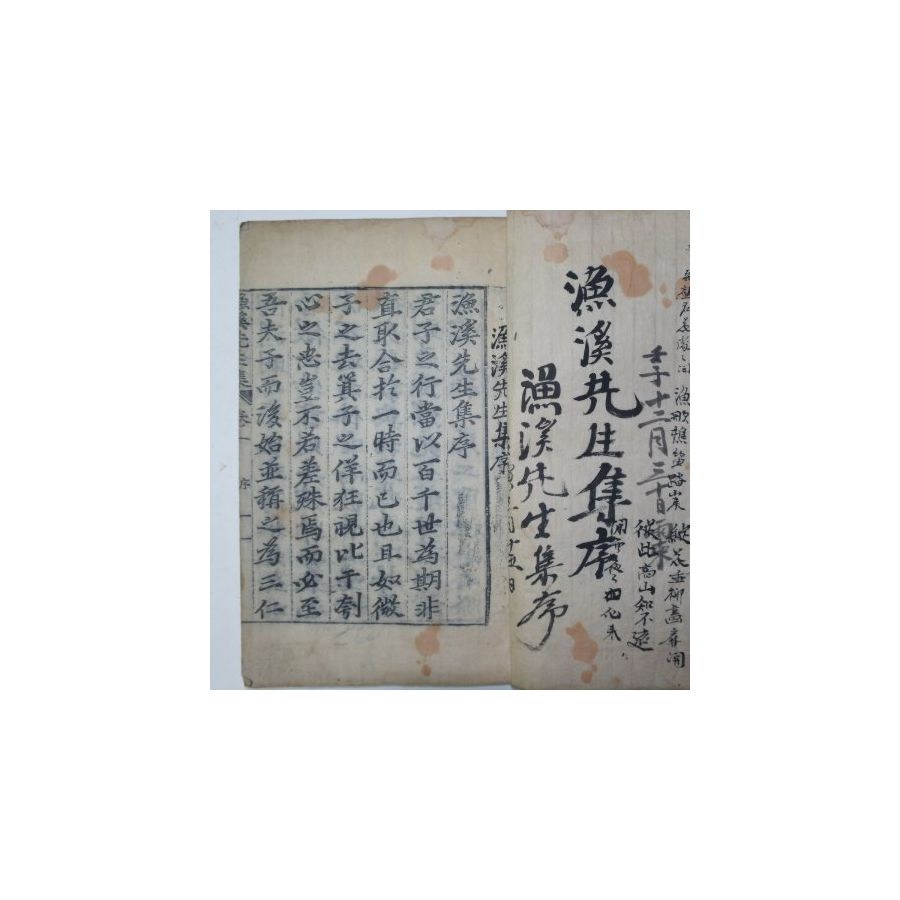 漁歌樵笛路
彼此高山知不遠
壬子十二月三十日
漁溪先生集序
漁溪先生集序
漁溪先生集序
漁溪先生集序
君子之行當以百千世為期非
直取合於一時而已也且如微
子之去箕子之佯狂視比干刳
心之忠豈不若差殊焉而必至
吾夫子而後始並稱之為三仁
漁溪先生集 卷一 序 一